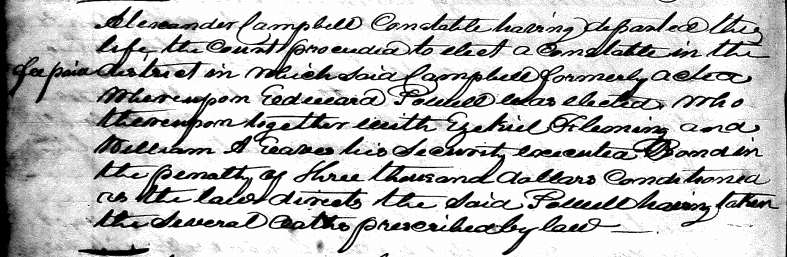 Alexander Campbell Constable having departed this
life, the Court proceeded to elect a Constable in the
fee paid
district in which said Campbell formerly acted
Whereupon Edward Powell was elected, who
thereupon together with Ezekiel Fleming and
William A Eaves his Security executed Bond in
the penalty of three thousand dollars Conditioned
as the law directs the said Powell having taken
the several Oaths prescribed by law